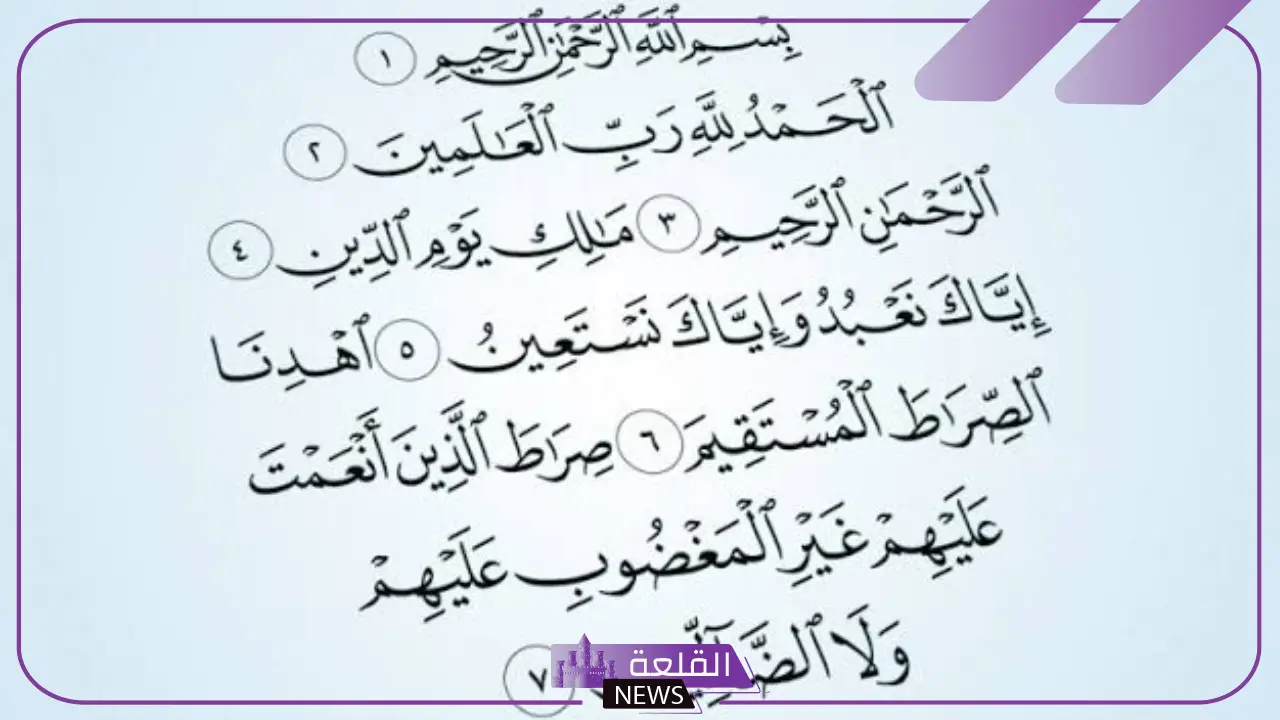 بِسْمِ ٱللَّهِ ٱلرَّحْمَٰنِ ٱلرَّحِيمِ ١
ٱلْحَمْدُ لِلَّهِ رَبِّ ٱلْعَٰلَمِينَ ٢
ٱلرَّحْمَٰنِ ٱلرَّحِيمِ ٣ مَٰلِكِ يَوْمِ ٱلدِّينِ ٤
إِيَّاكَ نَعْبُدُ وَإِيَّاكَ نَسْتَعِينُ ٥ ٱهْدِنَا
ٱلصِّرَاطَ ٱلْمُسْتَقِيمَ ٦ صِرَاطَ ٱلَّذِينَ أَنْعَمْتَ
عَلَيْهِمْ غَيْرِ ٱلْمَغْضُوبِ عَلَيْهِمْ
وَلَا ٧
القلعة
NEWS